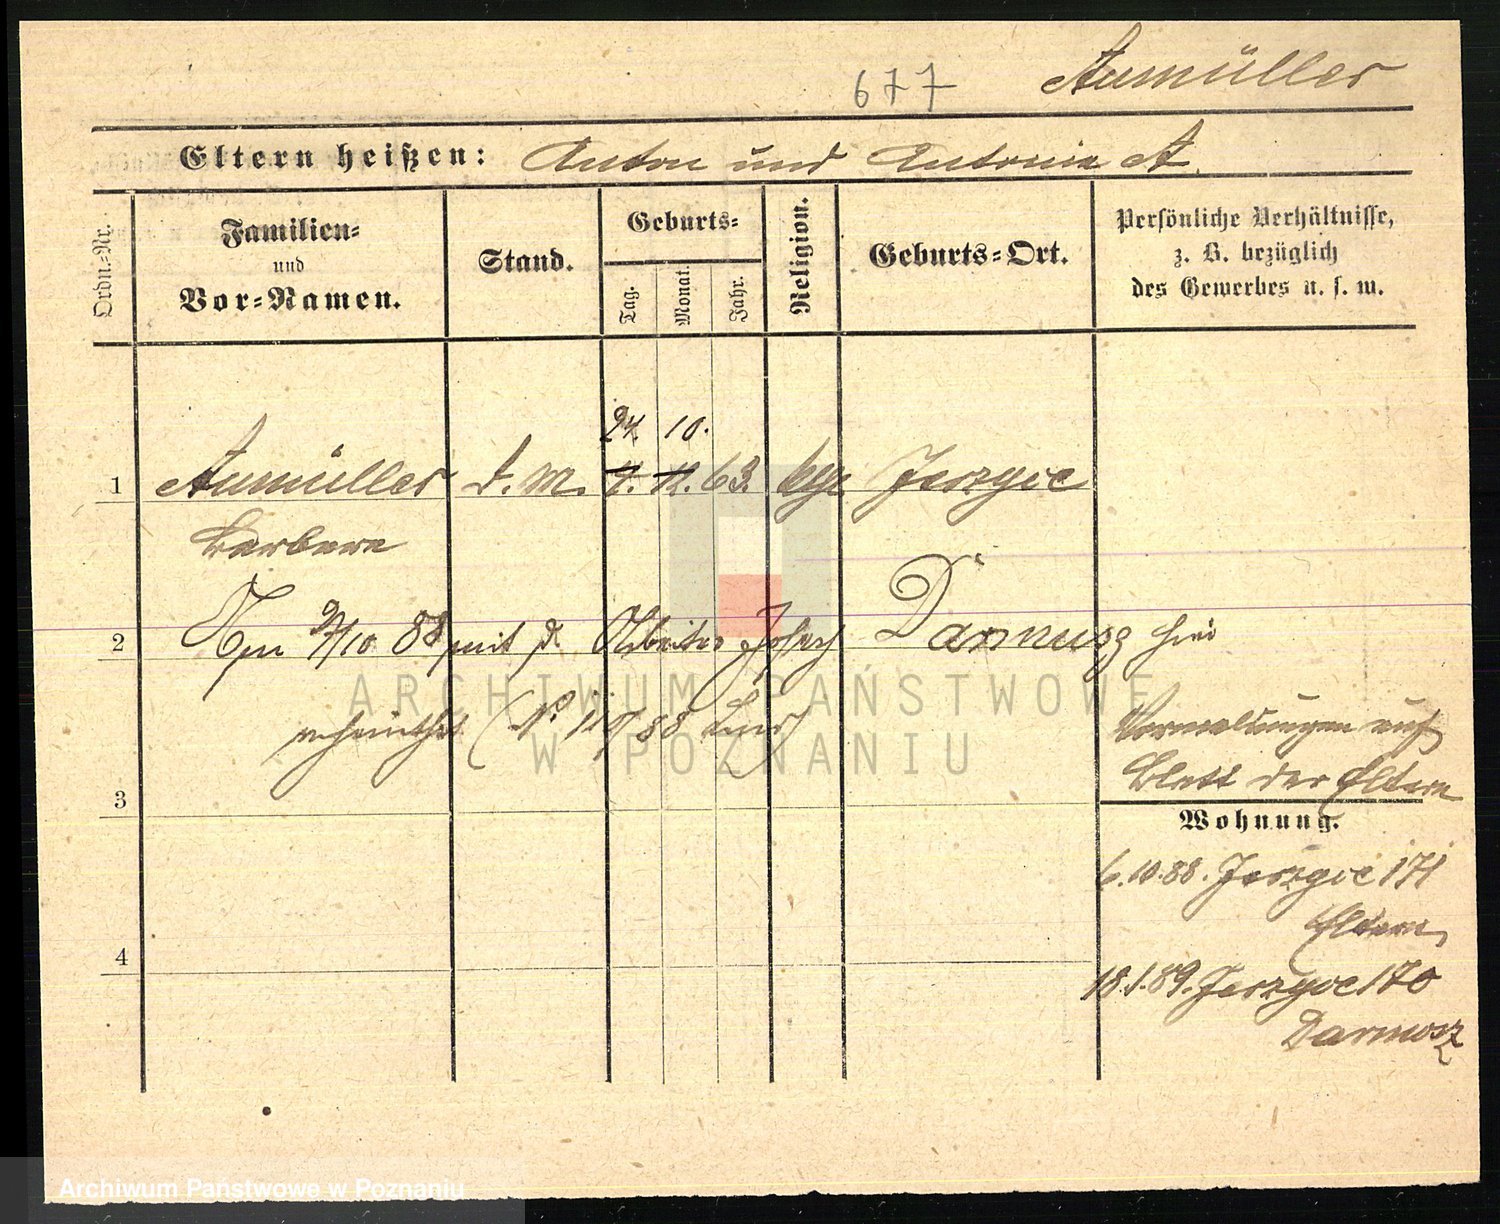 677 Aumüller
Eltern heißen: Anton und Antonie A.
Ordn.-Nr.
Familien-
und
Vor-Namen.
Stand.
Geburts-
Tag.
Monat.
Jahr.
Religion.
Geburts-Ort.
Persönliche Verhältnisse,
z. B. bezüglich
des Gewerbes u. s. w.
24. 10.
1 Aumüller d. M. 12. 63. Jerzyce
Barbara
2 /10 88 mit d. Arbeiter Joseph Darmusz hier
verheirathet 88
Vermeldungen auf
Blatt der Eltern
3
Wohnung.
6.10.88. Jerzyce 171
Eltern
4
18.1.89. Jerzyce 170
Darmosz
ARCHIWUM PAŃSTWOWE
W POZNANIU
Archiwum Państwowe w Poznaniu